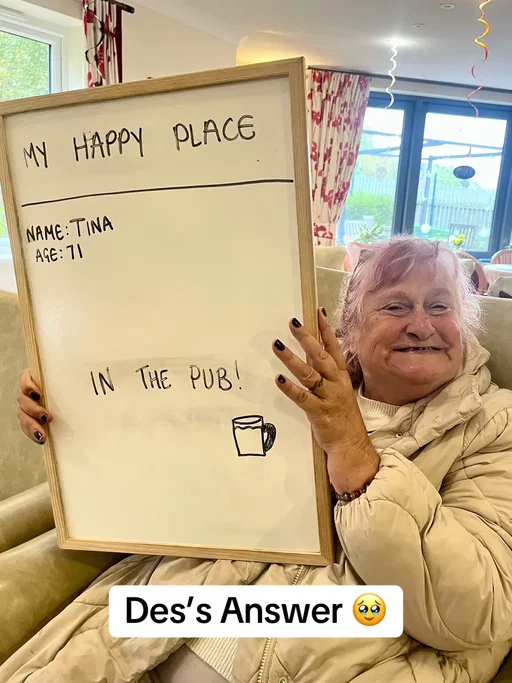 MY HAPPY PLACE
NAME: TINA
AGE: 71
IN THE PUB!
Des's Answer 🥹